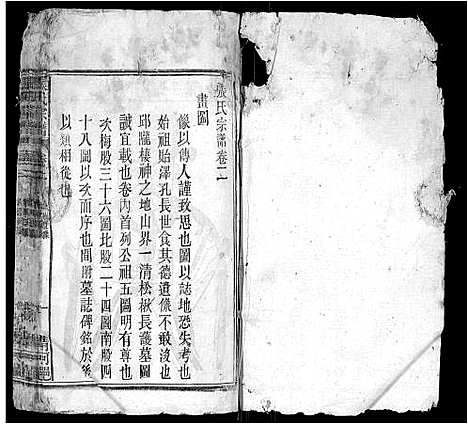 張氏宗譜卷二
畫圖
像以傳人謹致思也圖以誌地恐失考也
始祖貽澤孔長世食其德遺像不敢沒也
邱隴棲神之地山界一清松楸長護墓圖
誠宜載也卷內首列公祖五圖明有尊也
次梅股三十六圖比股二十四圖南股四
十八圖以次而序也間附墓誌碑銘於後
以類相從也